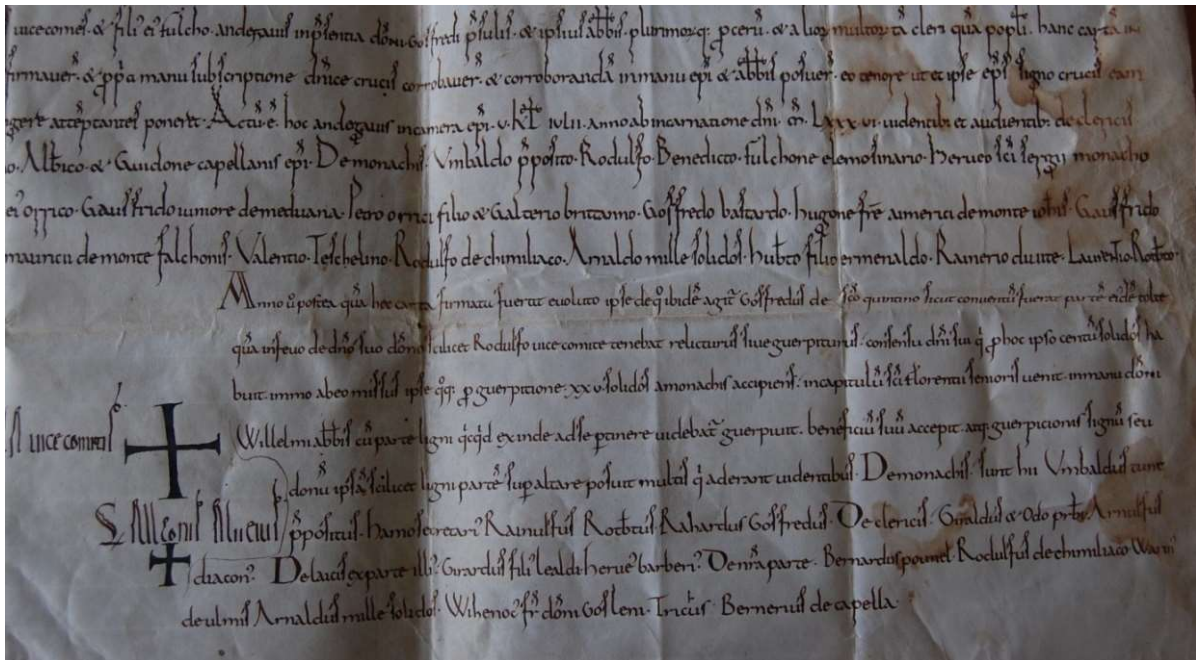 uicecomes. & filii ei' fulcho. andegauis in psentia domni Gosfredi psulis. & ipsius abbis. plurimorq; pceru. & alior multor ta cleri qua popli. hanc carta
firmauer. & ppa manu subscriptione dnice crucis corrobauer. & corroboranda in manu epi & abbis posuer. eo tenore ut et ipse eps signo crucis eam
acceptantes poneret. Actu. e. hoc andegauis in camera epi. v. kl iulii. anno ab incarnatione dni. LXXX.VI. uidentib; et audientib; de clericis
Albrico. & Guidone capellanis epi. De monachis. Vmbaldo pposito. Rodulfo. Benedicto. fulchone elemosinario. herueo sci sergii monacho
Gausfrido iuniore de meduana. Petro orrici filio & Galterio brittanno. Gosfredo bastardo. hugone fre aimerici de monte iohis. Gausfrido
mauricii de monte falchonis. Valentio. Teschelino. Rodulfo de chimiliaco. Arnaldo mille solidos. hubto filio ermenaldo. Rainerio diuite. Laurentio. Rotbto.
Anno u postea qua hec carta firmata fuerat euoluto ipse de q ibide agit Gosfredus de sco quintino sicut conuentu fuerat parte eide
qua in feuo de dno suo domo scilicet Rodulfo uice comite tenebat relicturus siue guerpiturus. consensu dni sui q p hoc ipso centu solidos ha
buit. immo ab eo missus ipse qq; p guerpitione. xx v solidos a monachis accipiens. in capitulu sci florentii senioris uenit. in manu domi
S. uicecomitis
Willelmi abbis cu parte ligni qcqd exinde ad se ptinere uidebat guerpiuit. beneficiu suu accepit. atq; guerpicionis signu seu
donu ipsa scilicet ligni parte sup altare posuit multis q aderant uidentibus. De monachis. sunt hii Vmbaldus tunc
S
ppositus. hamo secretari'. Rainulfus Rotbtus. Rahardus Gosfredus. De clericis. Giraldus & Odo pbri. Arnulfus
diacon'. De laicis ex parte illi'. Girardus fili' lealdi herue' barberi'. De nra parte. Bernardus poumel. Rodulfus de chimiliaco. Warin'
de ulmis Arnaldus mille solidos. Wihenoc' fr domi Gosleni. Tricus. Bernerius de capella.